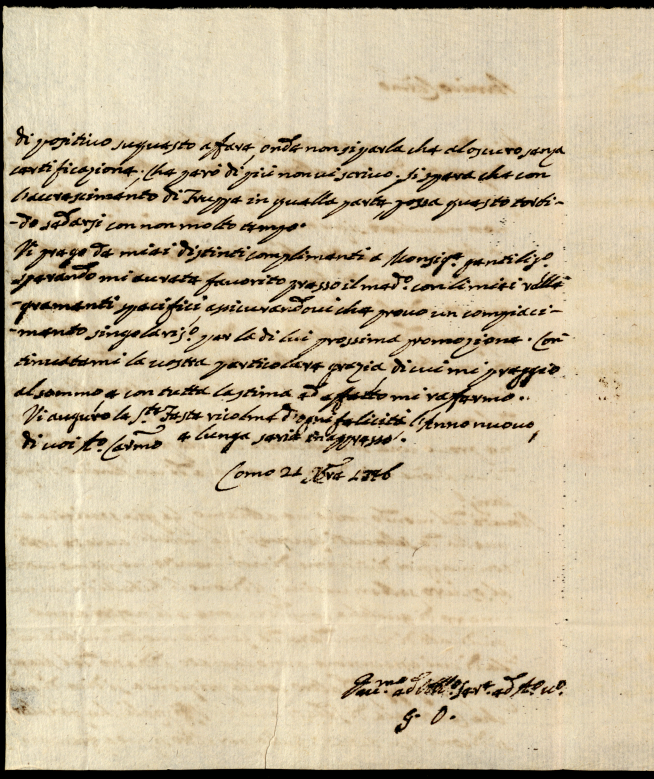 di positivo su questo affare onde non si parla che al oscuro senza
certificazione; che però di più non vi scrivo. si spera che con
l'accrescimento di Truppe in quella parte possa questo torbi-
-do sedarsi con non molto tempo.
Vi prego de miei distinti complimenti a Monsig.r gentilis.o
sperando mi avrete favorito presso il med.o con li miei ralle-
-gramenti specifici, assicurandovi che provo un compiaci-
-mento singolaris.o per la di lui prossima promozione. Con
tinuatemi la vostra particolare grazia di cui mi preggio
al sommo e con tutta la stima ed affetto mi raffermo.
Vi auguro le S.te Feste ricolme d'ogni felicità l'Anno nuovo,
di voi st.o Car.mo e lunga serie in appresso.
Como 21 Xbre
ed
G. O.